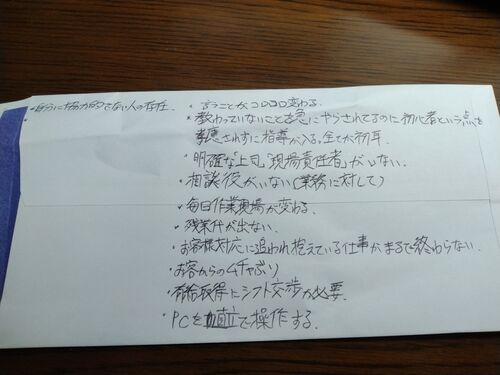 ・自分に協力的でない人の存在.
・言うことがコロコロ変わる.
・教わっていないことを急にやらされてるのに初心者という点を
考慮されずに指導が入る。全てが初耳.
・明確な「上司」「現場責任者」がいない.
・相談役がいない(業務に対して)
・毎日作業現場が変わる.
・残業代が出ない.
・お客様対応に追われ抱えている仕事がまるで終わらない.
・お客からのムチャぶり
・有給取得にシフト交渉が必要.
・PCを直立で操作する.